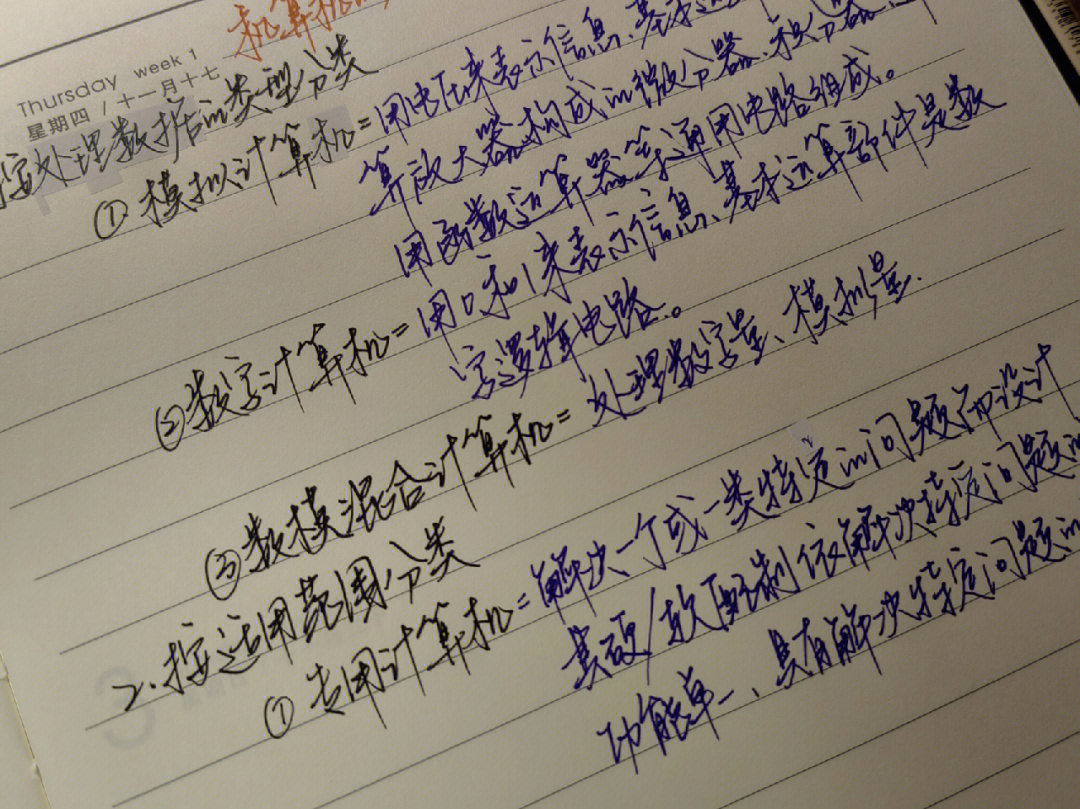 机算机
Thursday week 1
星期四 / 十一月十七
按处理数据的类型分类
① 模拟计算机=用电压来表示信息、基本运
算放大器构成的微分器、积分器、
用函数运算器等通用电路组成。
②数字计算机=用0和1来表示信息、基本运算部件是数
字逻辑电路。
③数模混合计算机=处理数字量、模拟量.
2.按适用范围分类
① 专用计算机=解决一个或一类特定的问题而设计
其硬/软配制依解决特定问题的
功能单一、具有解决特定问题的